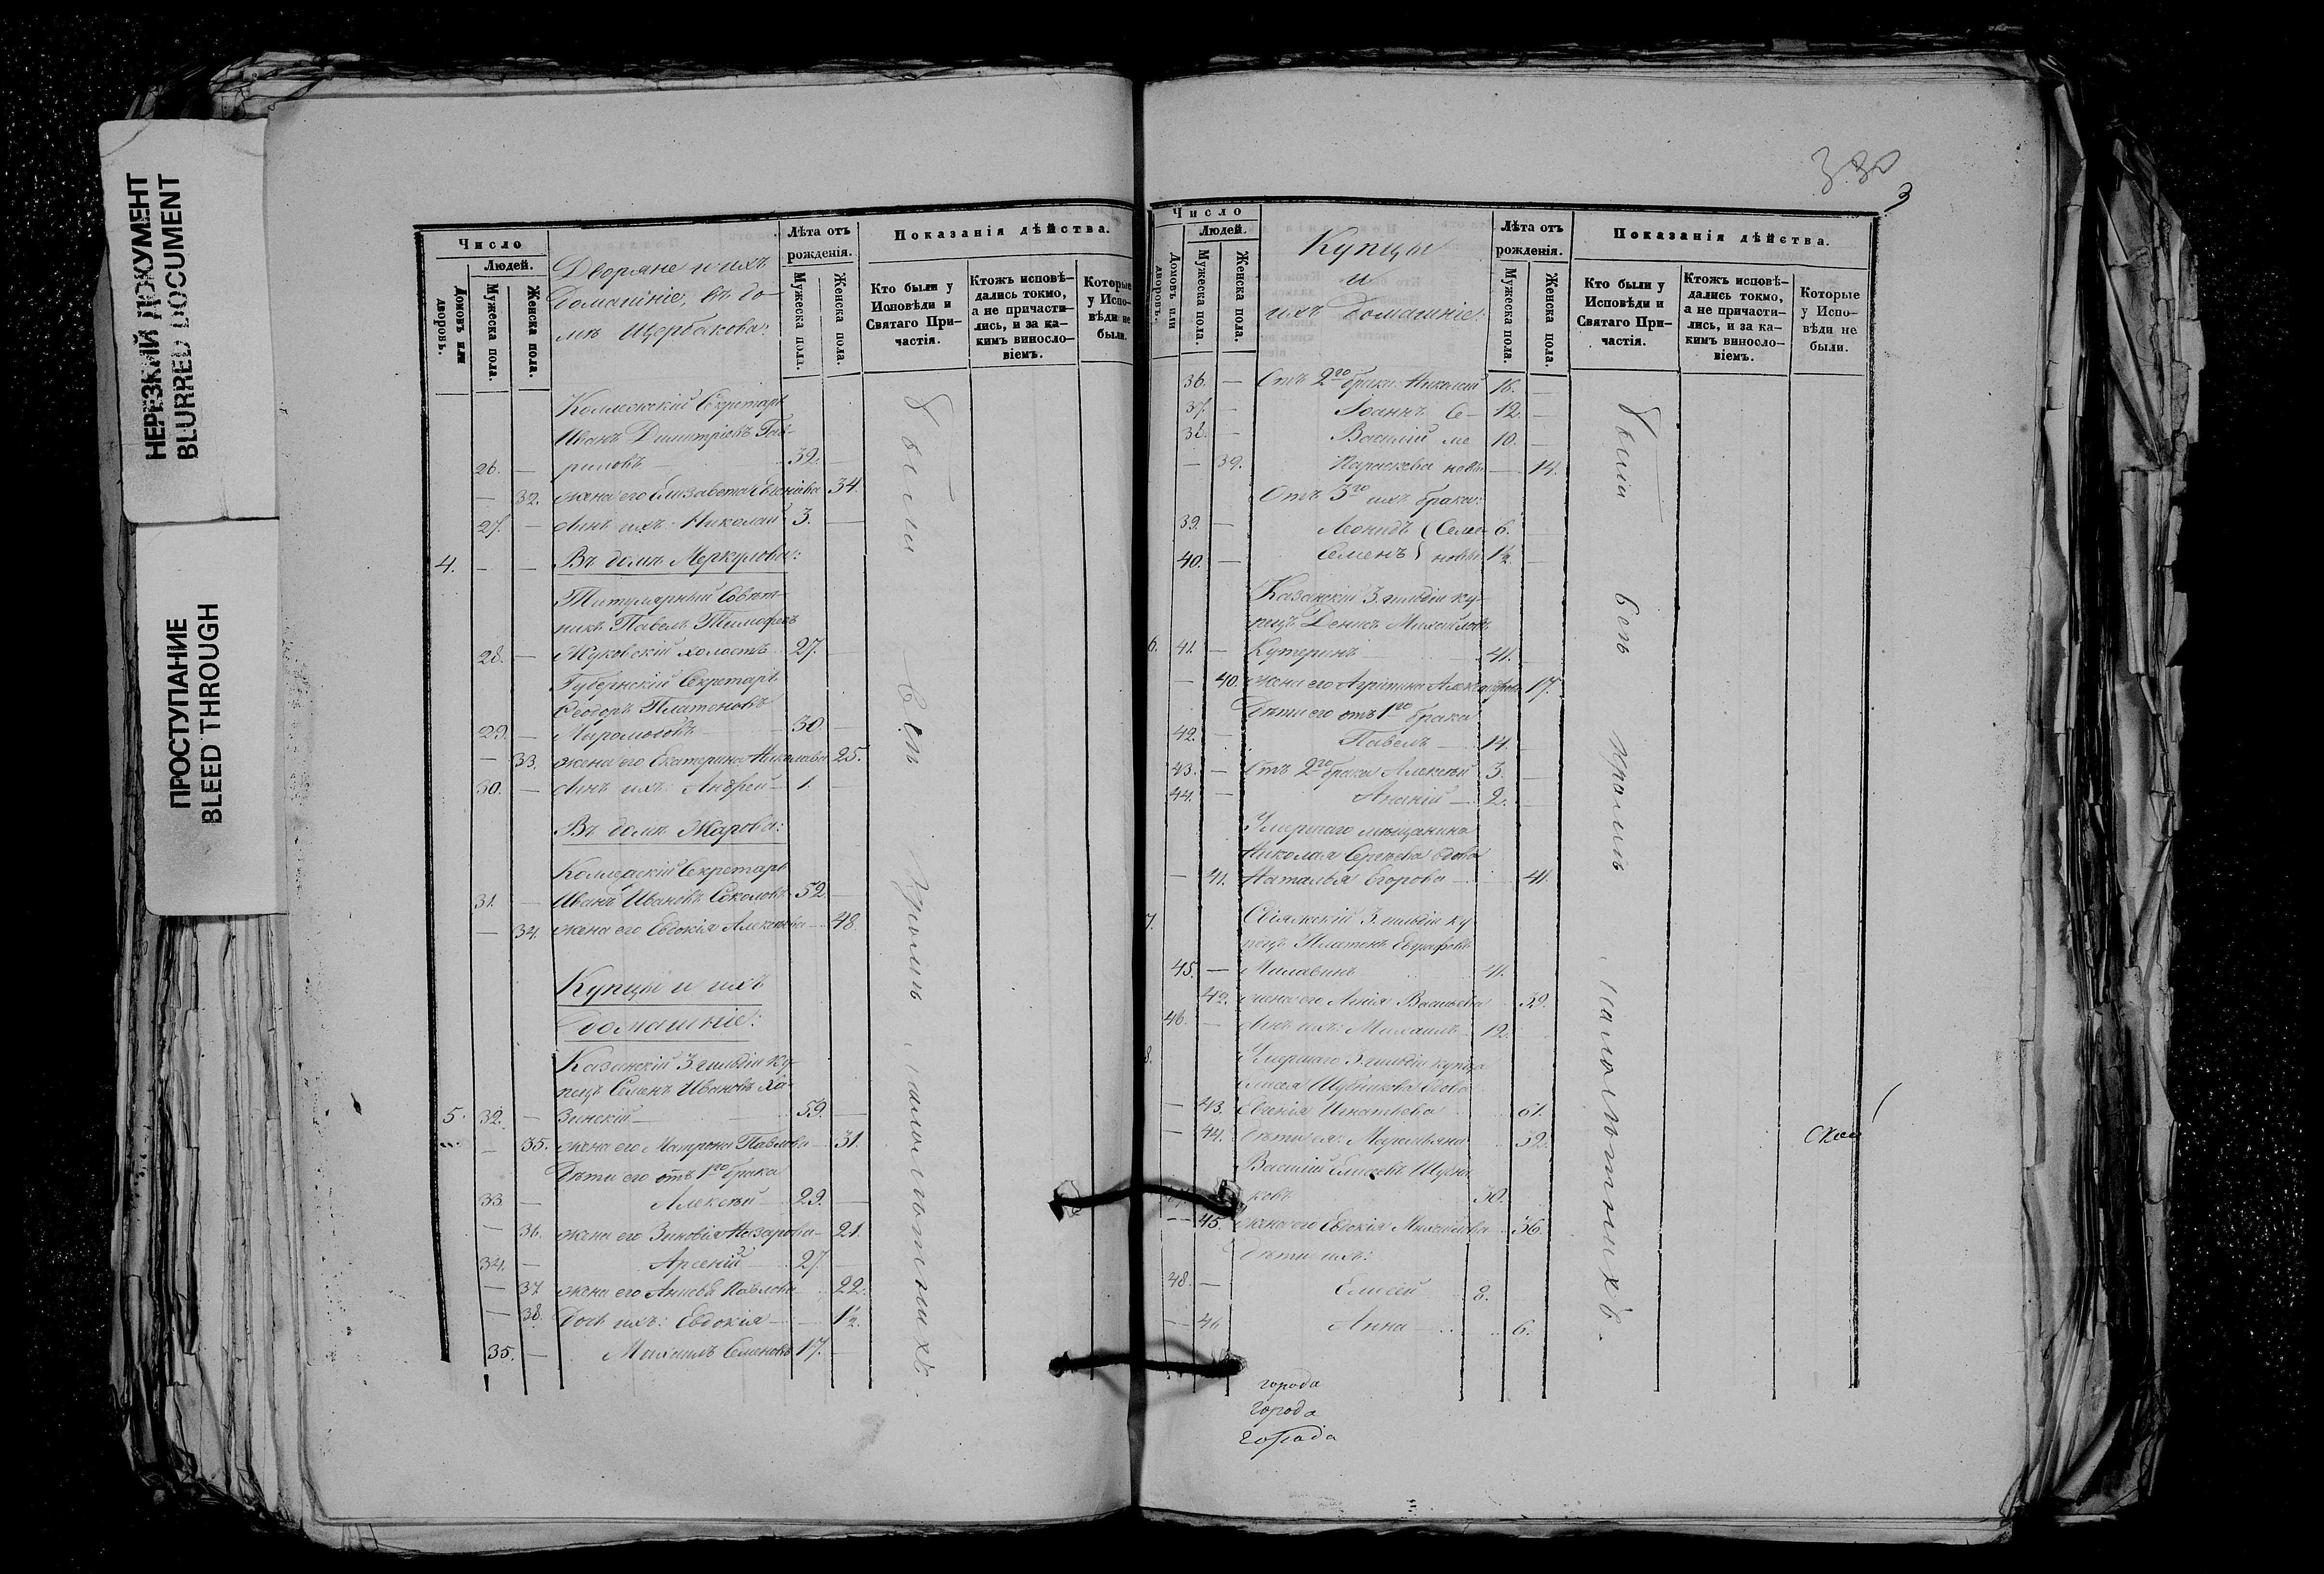 НЕРЕЗКИЙ ДОКУМЕНТ
BLURRED DOCUMENT
ПРОСТУПАНИЕ
BLEED THROUGH
Число
Людей.
Домовъ или дворовъ.
Мужеска пола.
Женска пола.
Дворяне и ихъ
Домашніе, въ до-
мѣ Щербакова:
Лѣта отъ
рожденія.
Мужеска пола.
Женска пола.
Показанія дѣйства.
Кто были у
Исповѣди и
Святаго При-
частія.
Ктожъ исповѣ-
дались токмо,
а не причасти-
лись, и за ка-
кимъ винosло-
віемъ.
Которые
у Испо-
вѣди не
были.
Коллежскій Секретарь
Иванъ Димитріевъ Гав-
26. — риловъ — 32. —
— 32. жена его Елизавета 34.
27. — сынъ ихъ Николай 3. —
4. — — Въ домѣ Меркулова:
Титулярный Совѣт-
никъ Павелъ Тимофеевъ
28. — Жуковскій холостъ 27. —
Губернскій Секретарь
Ѳеодоръ Платоновъ
29. — 30 —
— 33. жена его Екатерина Николаева 25.
30. — сынъ ихъ: Андрей — 1. —
Въ домѣ Жарова:
Коллежскій Секретарь
31. — Иванъ Ивановъ Соколовъ 52. —
— 34. жена его Евдокія Алексѣева — 48.
Купцы и ихъ
домашніе:
Казанскій 3 гильдіи ку-
пецъ Семенъ Ивановъ Ха-
5. 32. — зинскій — 59. —
— 35. жена его Матрона Павлова — 31.
Дѣти его отъ 1го брака
33. — Алексѣй — 29. —
— 36. жена его Зиновія Назарова — 21.
34. — Арсеній 27. —
— 37. жена его Павлова 22.
— 38. Дочь ихъ: Евдокія — 1½.
35. — Михаилъ Семеновъ 17. —
были всѣ кромѣ малолѣтнихъ.
330
3
Число
Людей.
Домовъ или дворовъ.
Мужеска пола.
Женска пола.
Купцы
и
ихъ Домашніе:
Лѣта отъ
рожденія.
Мужеска пола.
Женска пола.
Показанія дѣйства.
Кто были у
Исповѣди и
Святаго При-
частія.
Ктожъ исповѣ-
дались токмо,
а не причасти-
лись, и за ка-
кимъ виносло-
віемъ.
Которые
у Испо-
вѣди не
были.
36. — Отъ 2го брака: Николай 16. —
37. — Іоаннъ Се- 12. —
38. — Василій ме 10. —
— 39. Параскева новы — 14.
Отъ 3го ихъ брака:
39. — Леонидъ Семе 6. —
40. — Семенъ новы 1½. —
Казанскій 3 гильдіи ку-
пецъ Денисъ Михайловъ
6. 41. — Кутеринъ 41. —
— 40. жена его Агрипина 17.
Дѣти его отъ 1го брака
42. — Павелъ — 14. —
43. — Отъ 2го брака Алексѣй 3. —
44. — Ананій — 2. —
Умершаго мѣщанина
Николая Сергѣева вдова
— 41. Наталья Егорова — 41.
7. Свіяжскій 3 гильдіи ку
пецъ Платонъ Евграфовъ
45. — Милавинъ 41.
42. жена его Васильева 39.
46. — сынъ ихъ: Михаилъ 12.
8. Умершаго 3 гильдіи купца
вдова
— 43. Евгенія Игнатьева 61.
— 44. 32.
Василій Елисеевъ
38.
— 45. жена его Евдокія Михайлова 36.
Дѣти ихъ:
48. — Елисей 8.
— 46 Анна 6.
были всѣ кромѣ малолѣтнихъ.
города
города
города